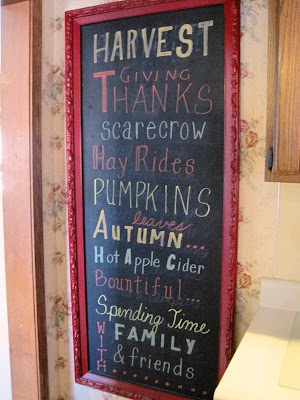 HARVEST
GIVING
THANKS
scarecrow
Hay Rides
PUMPKINS
leaves
AUTUMN...
Hot Apple Cider
Bountiful...
Spending Time
WITH FAMILY
& friends